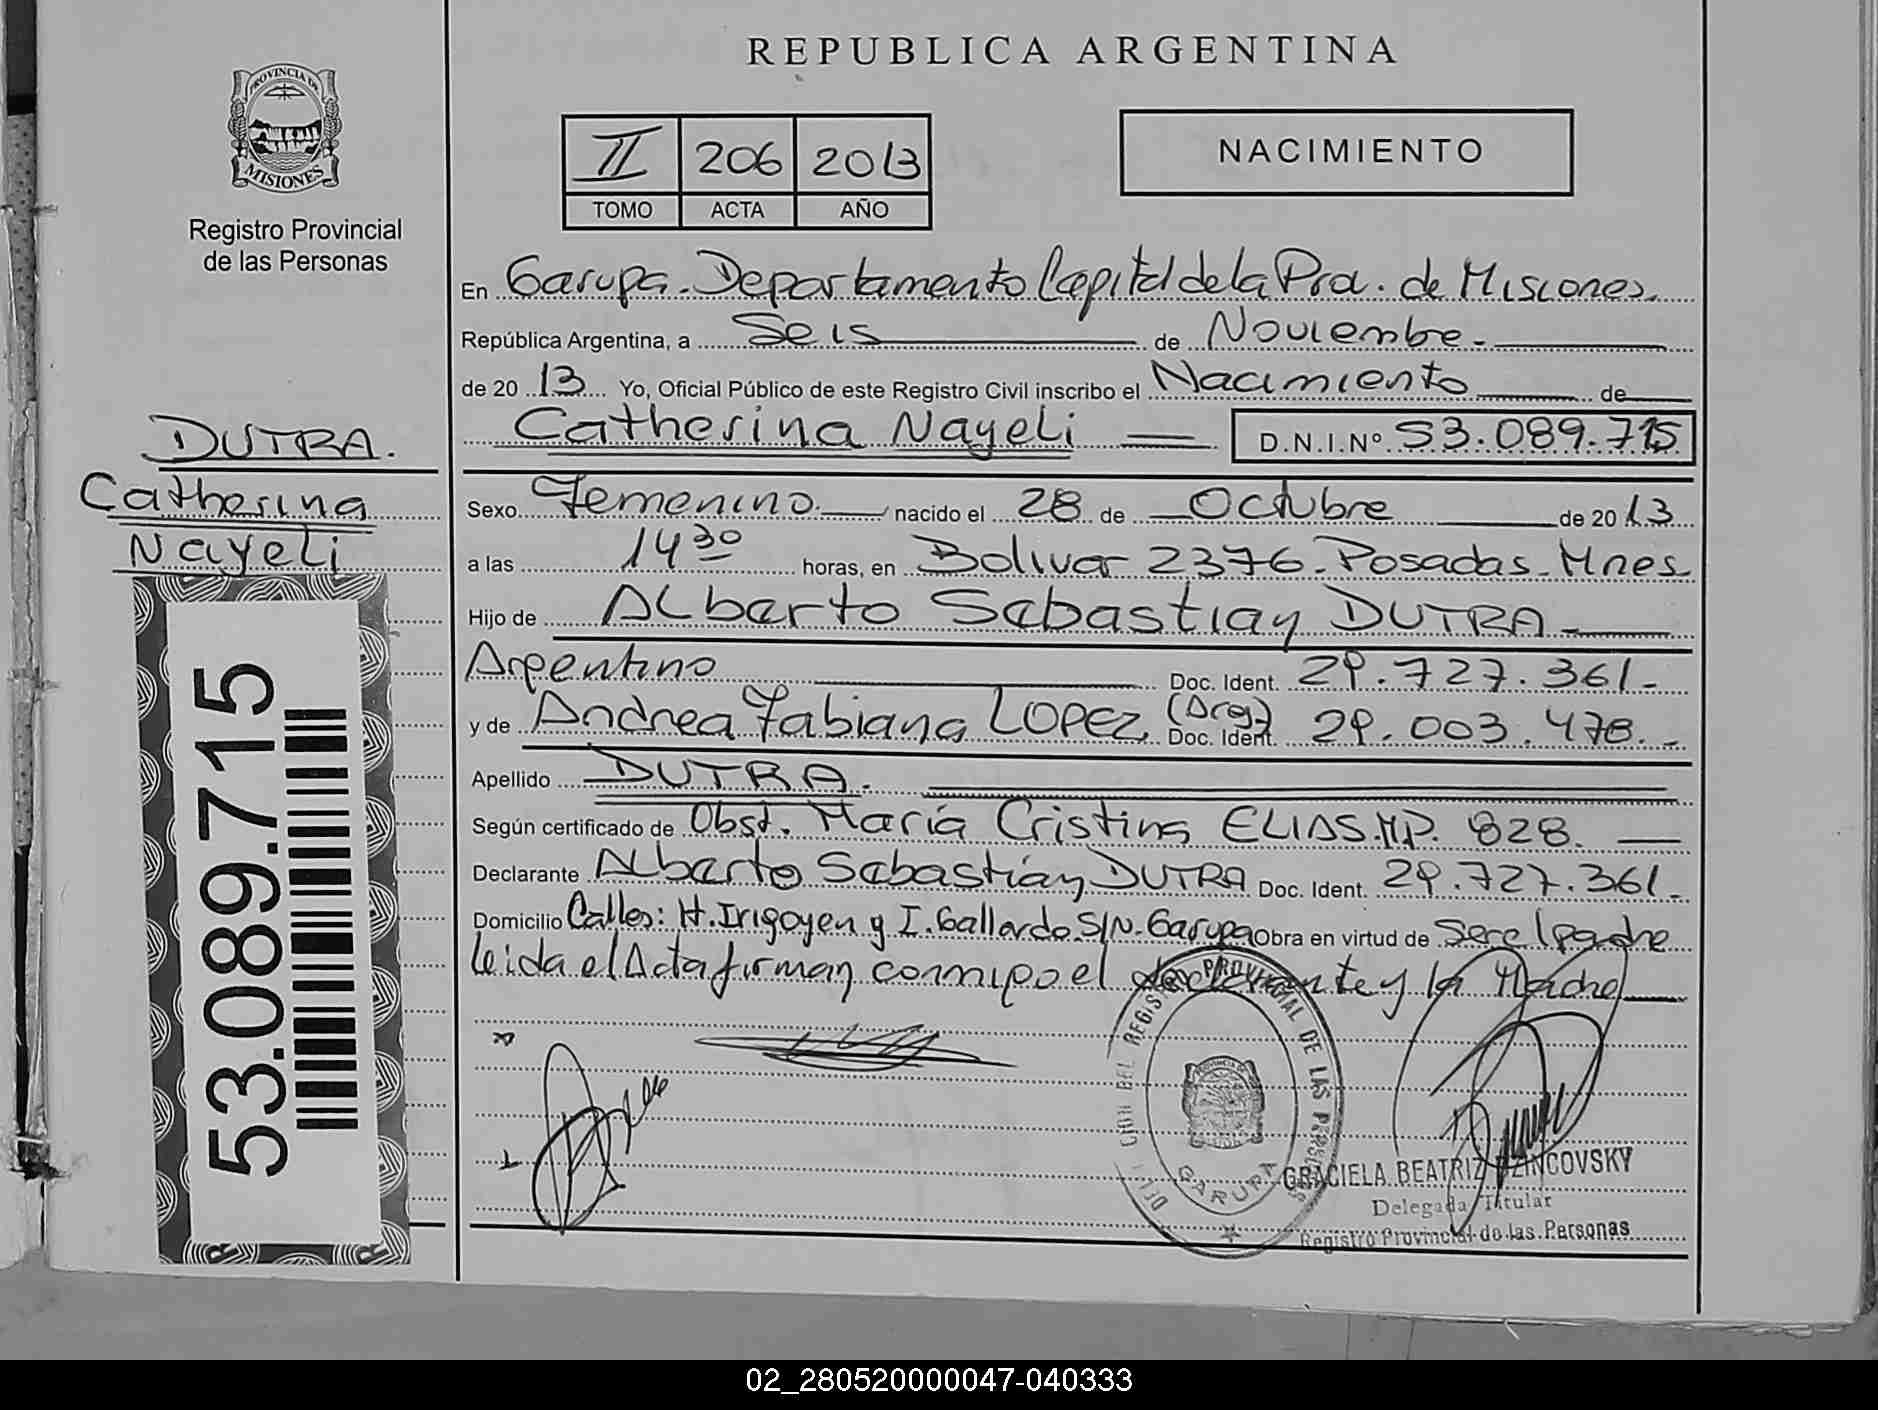 REPUBLICA ARGENTINA
PROVINCIA DE
MISIONES
Registro Provincial
de las Personas
II 206 2013
TOMO ACTA AÑO
NACIMIENTO
En Garupa. Departamento Capital de la Pcia. de Misiones.
República Argentina, a Seis de Noviembre.
de 20 13 Yo, Oficial Público de este Registro Civil inscribo el Nacimiento de
Catherina Nayeli D.N.I.Nº 53.089.715
DUTRA.
Catherina
Nayeli
53.089.715
Sexo Femenino nacido el 28 de Octubre de 20 13
a las 14 30 horas, en Bolivar 2376. Posadas. Mnes
Hijo de Alberto Sebastian DUTRA
Argentino Doc. Ident. 29.727.361.
y de Andrea Fabiana LOPEZ. (Arg.) Doc. Ident. 29.003.478.
Apellido DUTRA.
Según certificado de Obst. María Cristina ELIAS. M.P. 828.
Declarante Alberto Sebastián DUTRA Doc. Ident. 29.727.361.
Domicilio Calles: H. Irigoyen y I. Gallardo. S/N. Garupa Obra en virtud de Ser el padre
Leida el Acta firman conmigo el declarante y la Madre
DEL REGISTRO PROVINCIAL DE LAS PERSONAS
GARUPA
GRACIELA BEATRIZ
Delegada Titular
Registro Provincial de las Personas
02_280520000047-040333